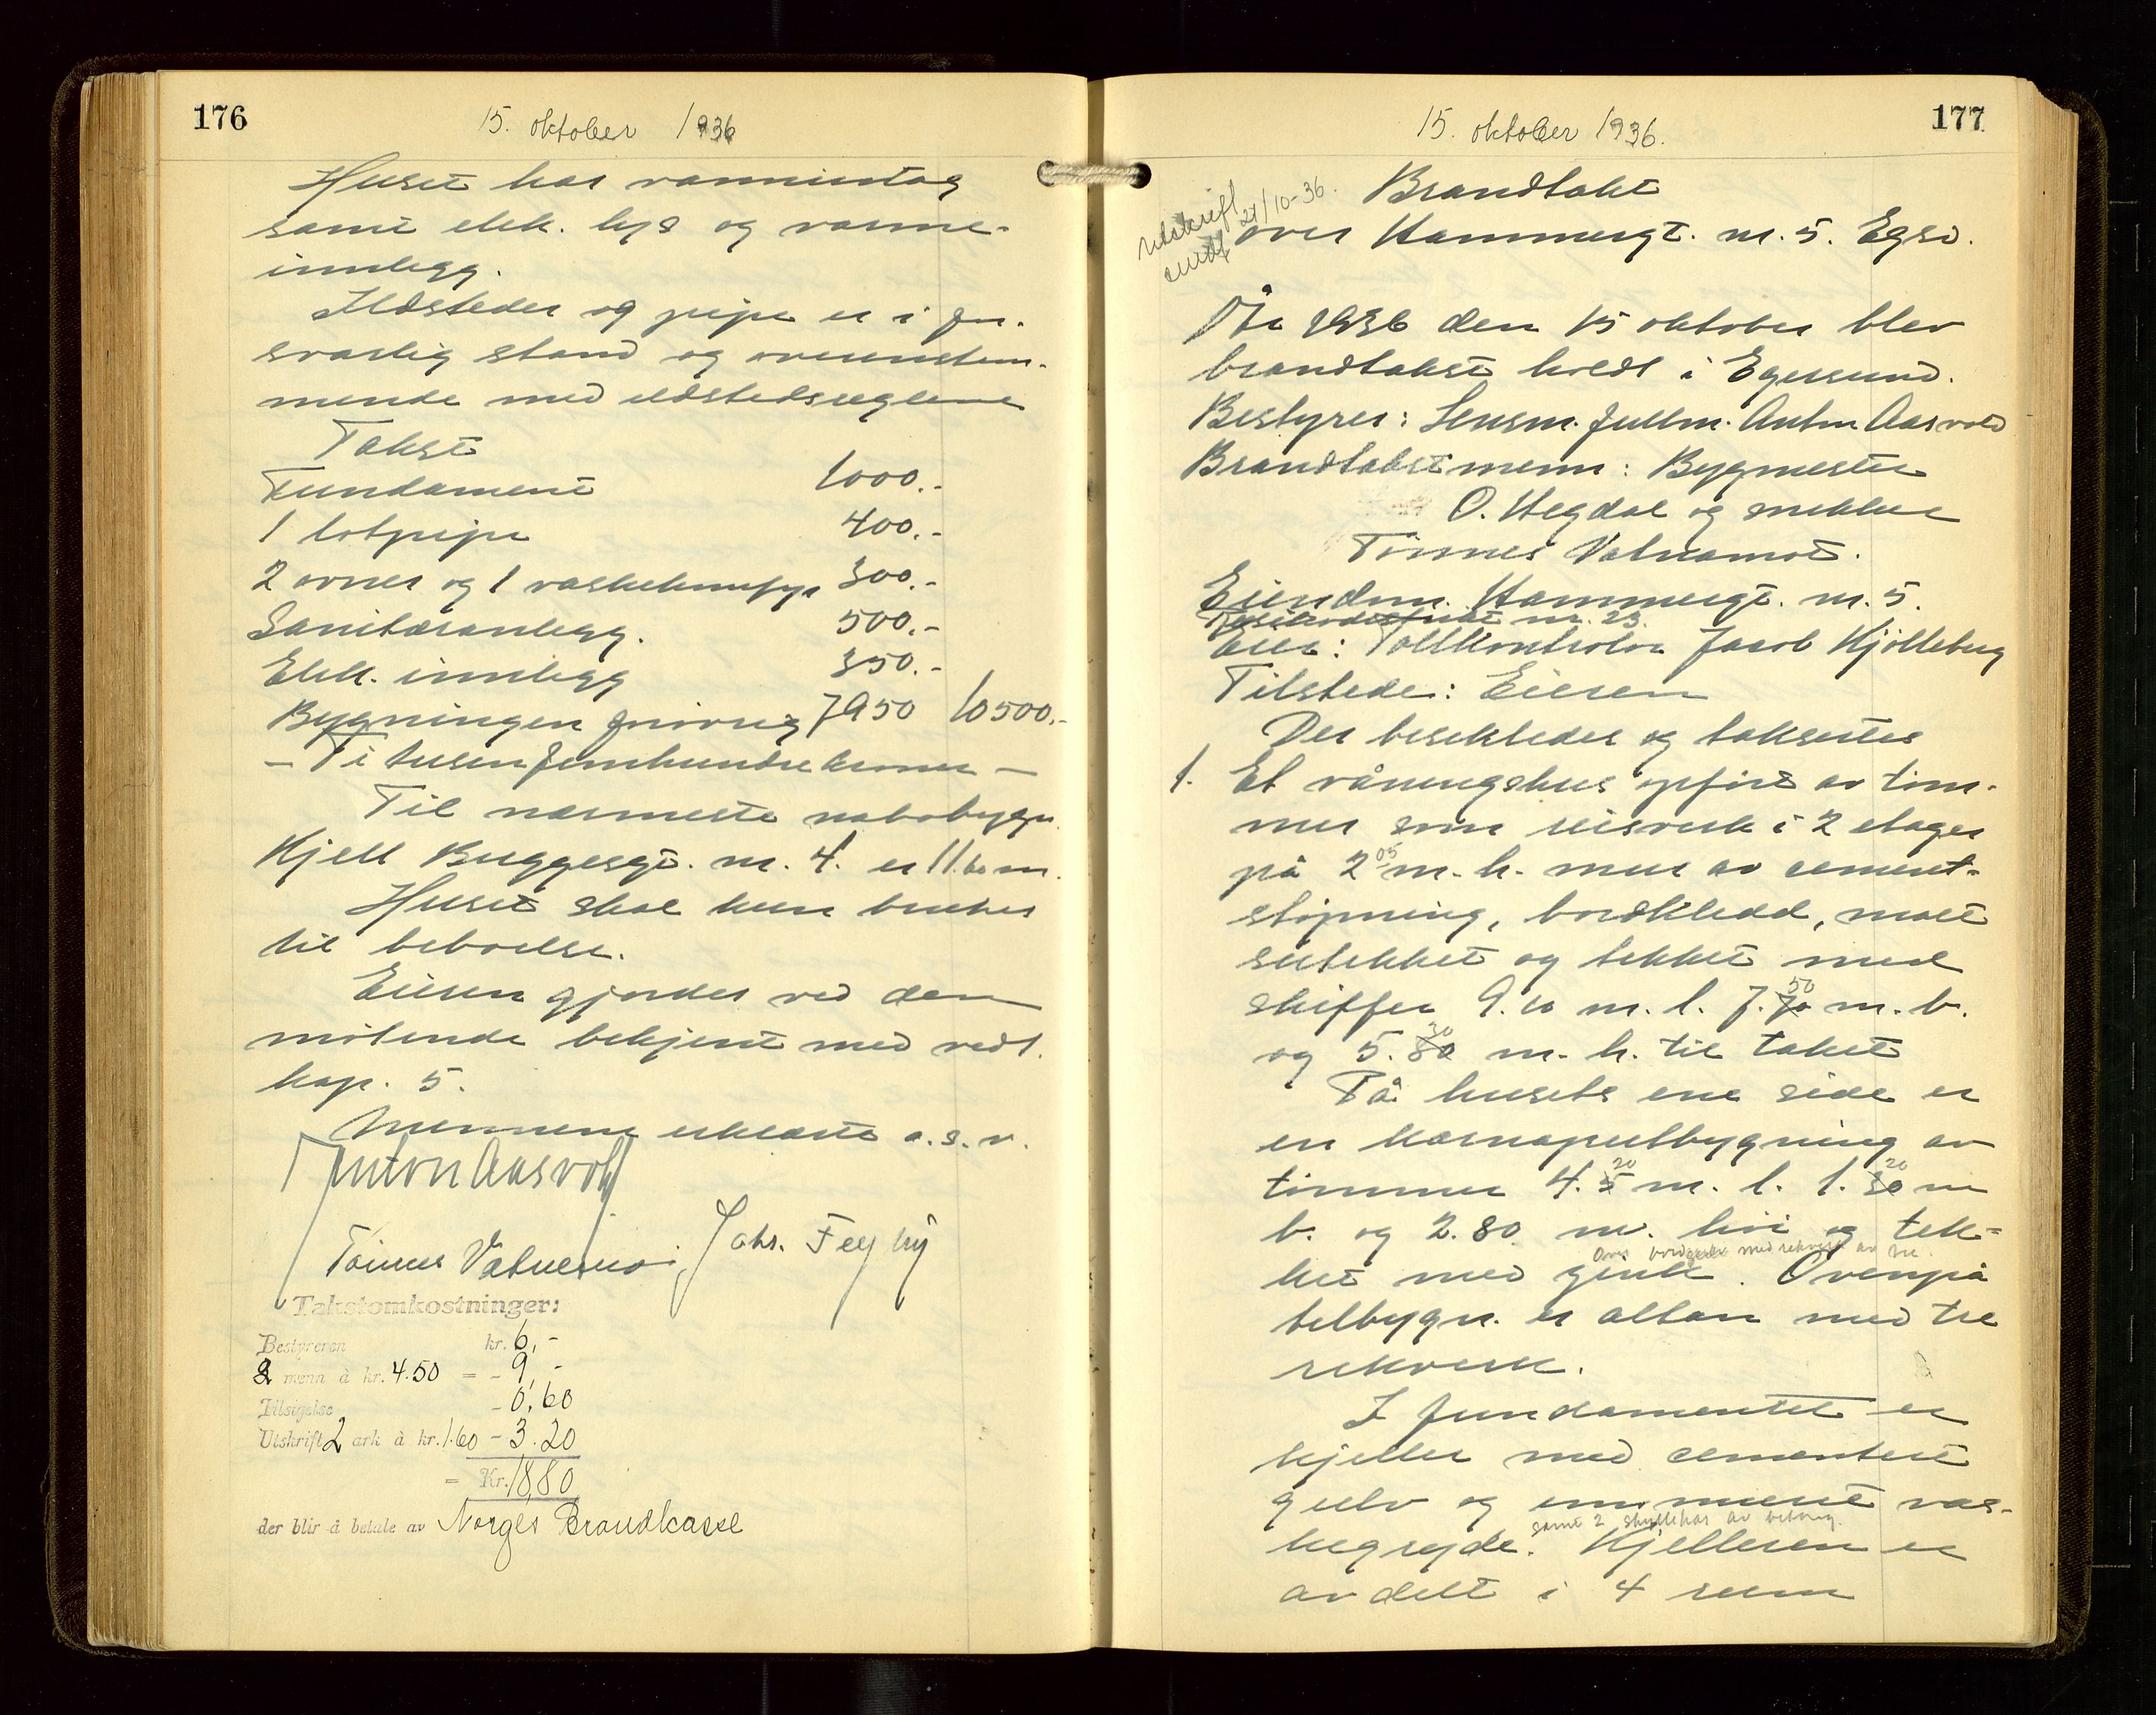 176
15. oktober 1936
Huset har vanninntag
samt elek. lys og varme-
innlegg.
Ildsteder og pipe er i for-
svarlig stand og overenstem-
mende med ildstedsreglene
Takst
Fundament 1000.-
1 løtpipe 400.-
2 ovner og 1 vaskekumfyr 300.-
Sanitæranlegg. 500.-
Elek. innlegg 350.-
Bygningen forøvrig 7950 10500.-
- Ti tusen femhundre kroner -
Til nærmeste nabobygn.
Kjell Buggesgt. nr. 4. er 11. m.
Huset skal kun brukes
til beboelse.
Eieren gjordes ved den
møtende bekjent med vedt.
kap. 5.
Mennene erklærte o.s.v.
Anton Aasvold
Tønnes Vatnemo Johs. Feyling
Takstomkostninger:
Bestyreren kr. 6,-
2 menn à kr. 4.50 = - 9,-
Tilsigelse - 0,60
Utskrift 2 ark à kr. 1.60 - 3.20
= Kr. 18,80
der blir å betale av Norges Brandkasse
177
15. oktober 1936.
Utskrift 21/10-36.
sendt
Brandtakst
over Hammergt. nr. 5. Egsd.
År 1936 den 15 oktober blev
brandtakst holdt i Egersund.
Bestyrer: Lensm. fullm. Anton Aasvold
Brandtakstmenn: Bygmester
O. Hegdal og snekker
Tønnes Vatnamot.
Eiendom. Hammergt. nr. 5.
nr. 23.
Eier: Tollkontrolør Jacob Kjølleberg
Tilstede: Eieren
Der besiktedes og takstertes
1. Et våningshus opført av tøm-
mer som reisverk i 2 etager
på 2 05 m. h. mur av cement-
støpning, bordkledd, malt
sutekket og tekket med
skiffer 9.10 m. l. 7.70 50 m. b.
og 5.80 30 m. h. til taket
På husets ene side er
en karnaputbygning av
tømmer 4.5 20 m. l. 1.30 20 m
b. og 2.80 m. høi og tek-
ket med zink. Ovenpå
tilbygn. er altan med tre
rekverk.
I fundamentet er
kjeller med cementert
gulv og innmurt vas-
samt 2 skyllekar av betong.
kegryde. Kjelleren er
avdelt i 4 rum